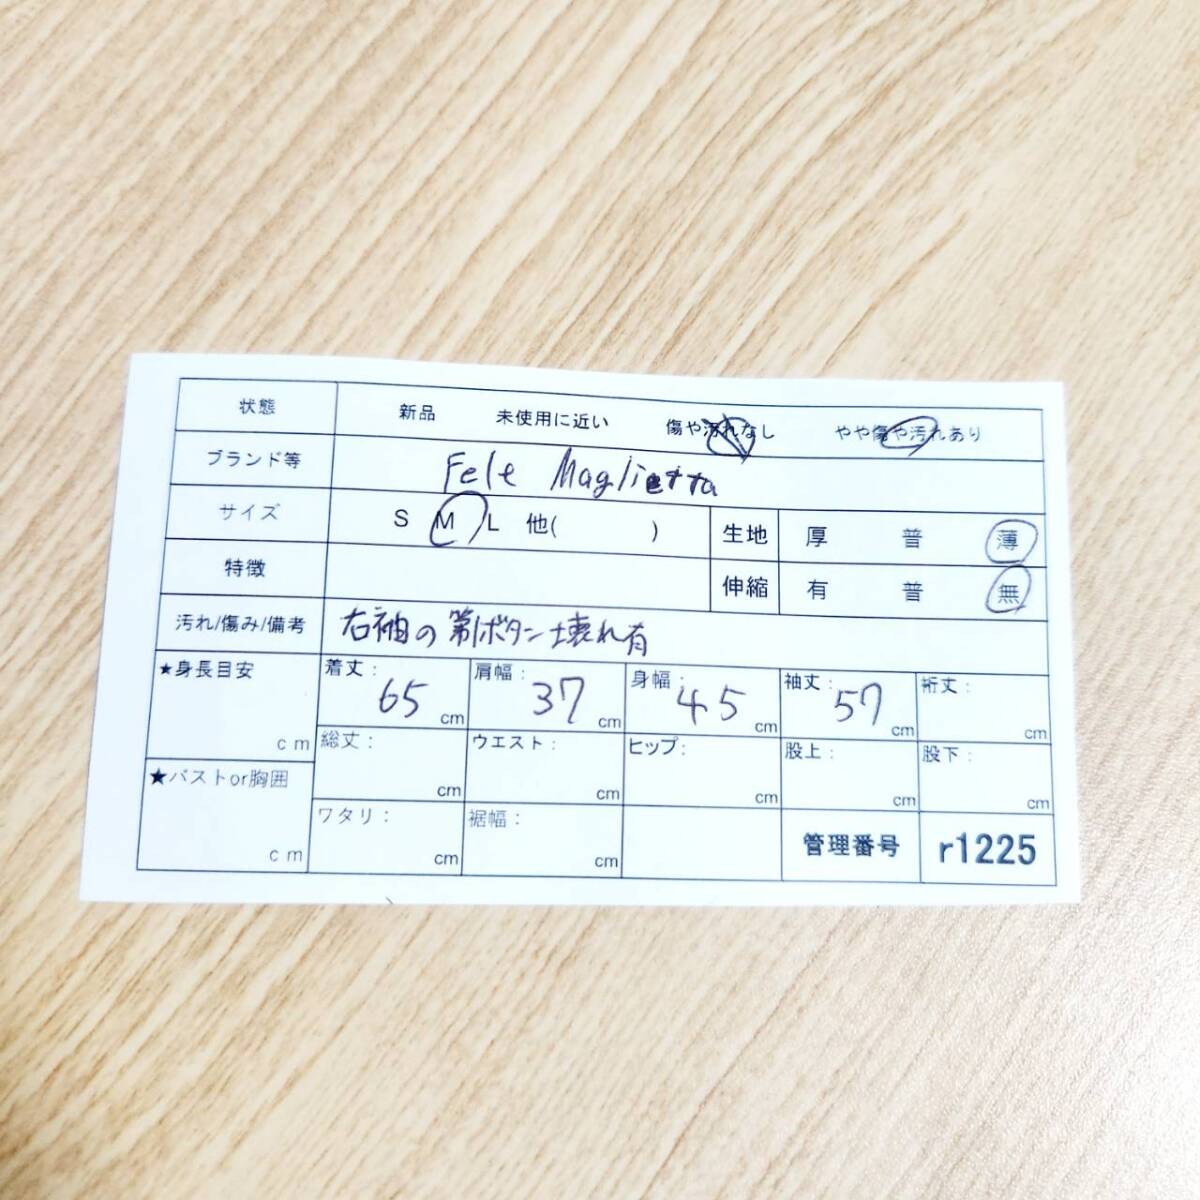 状態 新品 未使用に近い 傷や汚れなし やや傷や汚れあり
ブランド等 Fele Maglietta
サイズ S M L 他( ) 生地 厚 普 薄
特徴 伸縮 有 普 無
汚れ/傷み/備考 右袖の第1ボタン壊れ有
★身長目安 cm 着丈: 65 cm 肩幅: 37 cm 身幅: 45 cm 袖丈: 57 cm 裄丈: cm
総丈: cm ウエスト: cm ヒップ: cm 股上: cm 股下: cm
★バストor胸囲 cm ワタリ: cm 裾幅: cm 管理番号 r1225